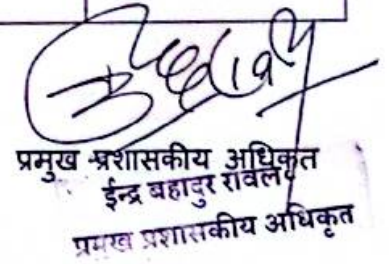 प्रमुख प्रशासकीय अधिकृत
ईन्द्र बहादुर रावल
प्रमुख प्रशासकीय अधिकृत